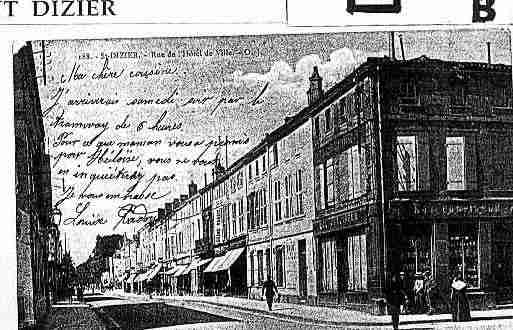 T DIZIER
B
188. - St-DIZIER. - Rue de l'Hôtel de Ville
Ma chère cousine.
J'arriverais samedi soir par le
tramway de 6 heures
Pour ce que maman vous a promis
par Héloïse, vous ne vous
en inquiétez pas.
Je vous embrasse
Louise